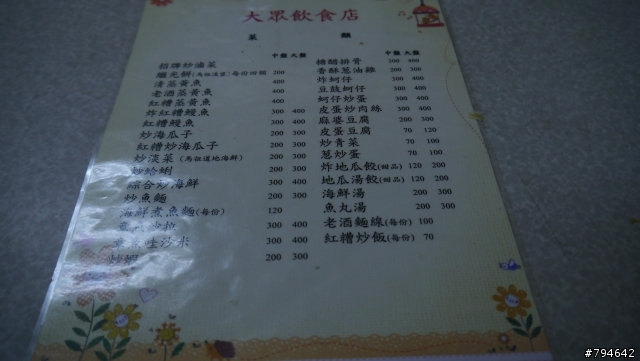 大眾飲食店
菜類
中盤 大盤
招牌炒滷菜
繼光餅(馬祖漢堡)每份四個 200
清蒸黃魚 400
老酒蒸黃魚 400
紅糟蒸黃魚 400
炸紅糟鰻魚 300 400
紅糟鰻魚 300 400
炒海瓜子 200 300
紅糟炒海瓜子 200 300
炒淡菜(馬祖道地海鮮) 200 300
炒蛤蜊 200 300
綜合炒海鮮 300 400
炒魚麵 200 300
海鮮煮魚麵(每份) 120
300 400
300 400
200 300
中盤 大盤
糖醋排骨 300 400
香酥蔥油雞 200 300
炸蚵仔 300 400
豆豉蚵仔 300 400
蚵仔炒蛋 300 400
皮蛋炒肉絲 300 400
麻婆豆腐 200 300
皮蛋豆腐 70 120
炒青菜 70 100
蔥炒蛋 70 100
炸地瓜餃(甜品) 120 200
地瓜湯餃(甜品) 120 200
海鮮湯 200 300
魚丸湯 200 300
老酒麵線(每份) 100
紅糟炒飯(每份) 70
#794642